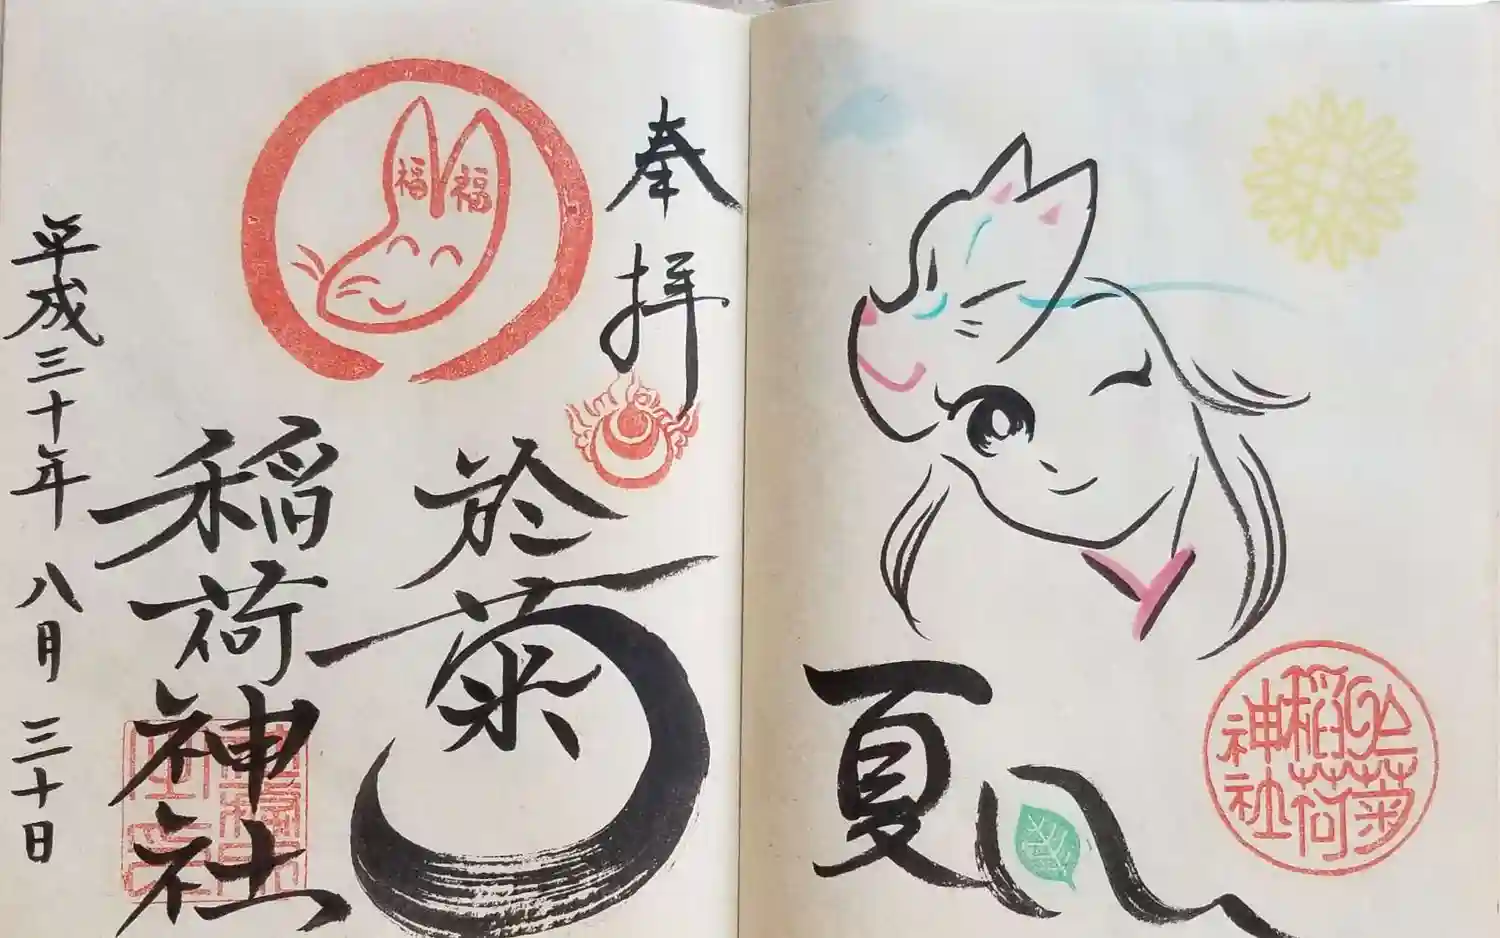 奉拝
於菊
稲荷神社
平成三十年 八月 三十日
福 福
夏
於菊
稲荷
神社